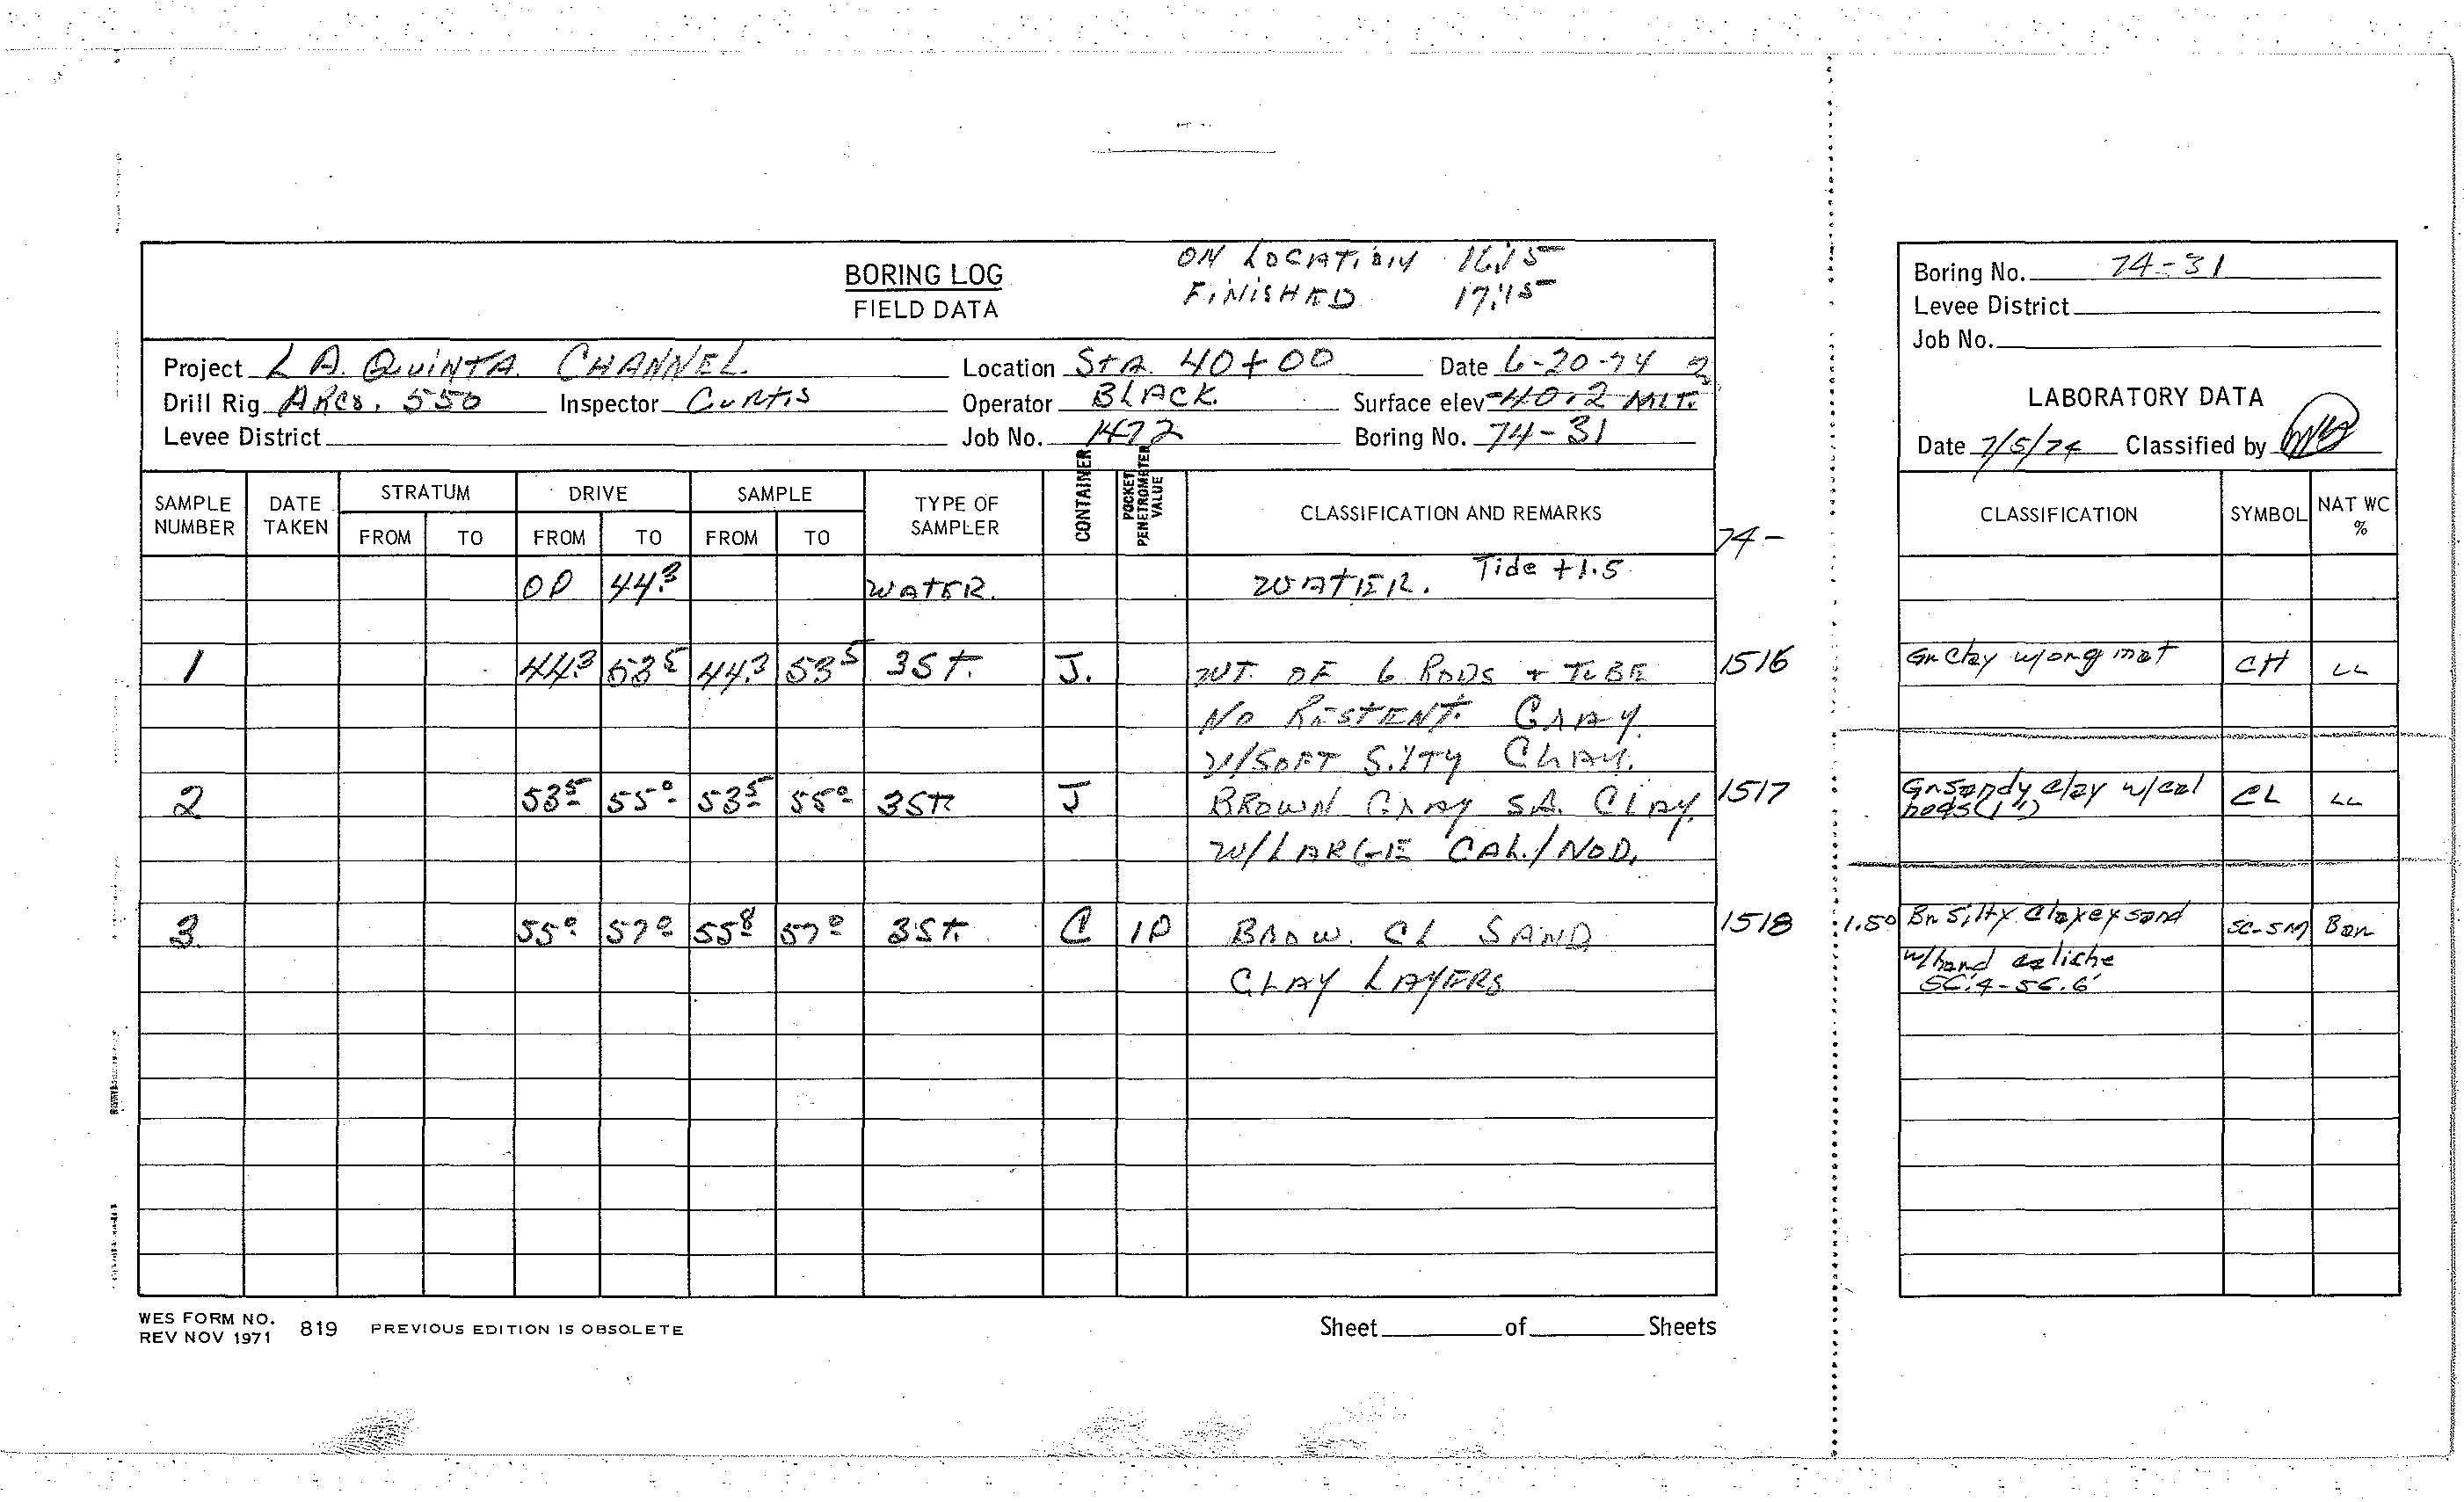 BORING LOG
FIELD DATA
ON LOCATION 16:15
FINISHED 17:15
Project LA. QUINTA. CHANNEL. Location STA. 40+00 Date 6-20-74
Drill Rig ARCO. 550 Inspector CURTIS Operator BLACK. Surface elev -40.2 MLT.
Levee District Job No. 1472 Boring No. 74-31
SAMPLE NUMBER DATE TAKEN STRATUM FROM TO DRIVE FROM TO SAMPLE FROM TO TYPE OF SAMPLER CONTAINER POCKET PENETROMETER VALUE CLASSIFICATION AND REMARKS
74-
00 44.3 WATER. WATER. Tide +1.5
1 44.3 53.5 44.3 53.5 3ST. J. WT. OF 6 RODS + TUBE 1516
NO RESTENT. GRAY
V/SOFT SILTY CLAY.
2 53.5 55.0 53.5 55.0 3ST. J BROWN GRAY SA. CLAY. 1517
W/LARGE CAL./NOD.
3 55.0 57.0 55.8 57.0 3ST. C 10 BROW. CL SAND 1518
CLAY LAYERS
WES FORM NO. 819 PREVIOUS EDITION IS OBSOLETE
REV NOV 1971
Sheet of Sheets
Boring No. 74-31
Levee District
Job No.
LABORATORY DATA
Date 7/5/74 Classified by
CLASSIFICATION SYMBOL NAT WC %
Gr Clay w/org mat CH LL
Gr Sandy clay w/cal CL LL
nods (1")
1.50 Br silty clayey sand SC-SM Ban
w/hard caliche
56.4-56.6'